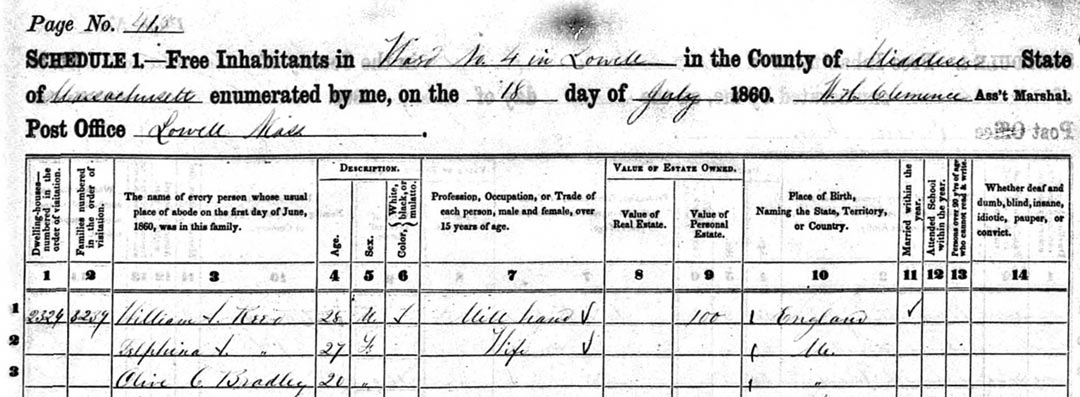 Page No. 41
SCHEDULE 1.—Free Inhabitants in Ward No 4 in Lowell in the County of Middlesex State
of Massachusetts enumerated by me, on the 18 day of July 1860. Clemence Ass't Marshal.
Post Office Lowell Mass.
Dwelling-houses—numbered in the order of visitation.
Families numbered in the order of visitation.
The name of every person whose usual place of abode on the first day of June, 1860, was in this family.
DESCRIPTION.
Age.
Sex.
Color, { White, black, or mulatto.
Profession, Occupation, or Trade of each person, male and female, over 15 years of age.
VALUE OF ESTATE OWNED.
Value of Real Estate.
Value of Personal Estate.
Place of Birth, Naming the State, Territory, or Country.
Married within the year.
Attended School within the year.
Persons over 20 y'rs of age who cannot read & write.
Whether deaf and dumb, blind, insane, idiotic, pauper, or convict.
1 2 3 4 5 6 7 8 9 10 11 12 13 14
1 2329 3259 William 28 M Mill hand 100 England
2 Delphina " 27 F Wife Me.
3 Olive C Bradley 20 " "